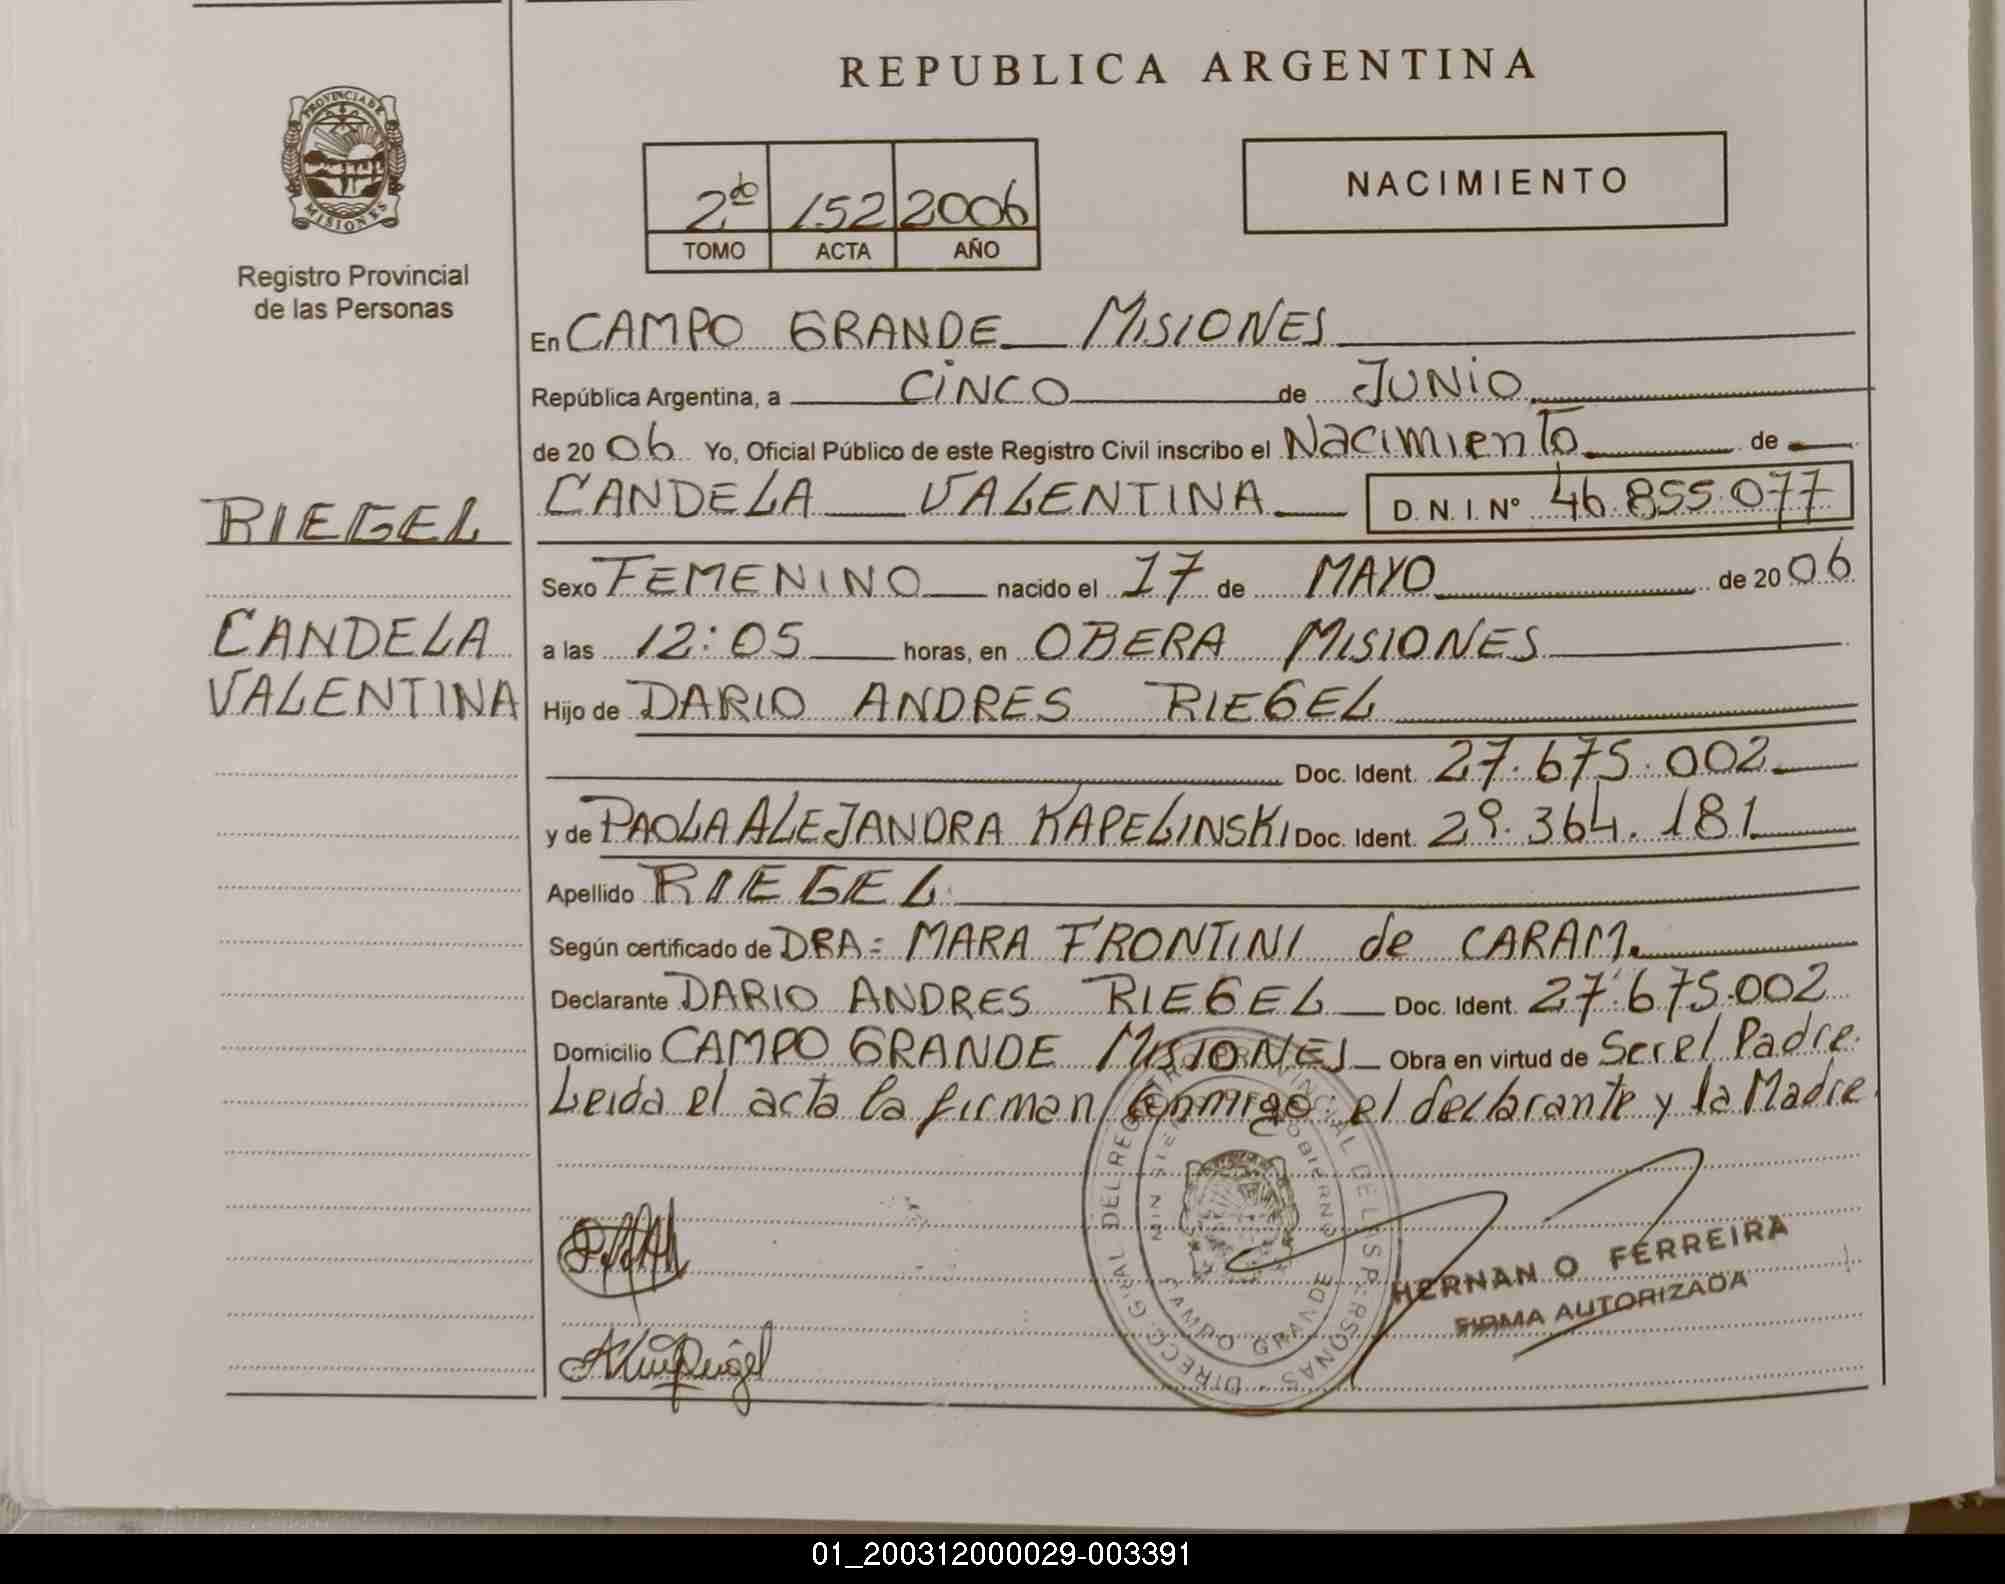 REPUBLICA ARGENTINA
PROVINCIA DE
MISIONES
Registro Provincial
de las Personas
2do 152 2006
TOMO ACTA AÑO
NACIMIENTO
En CAMPO GRANDE MISIONES
República Argentina, a CINCO de JUNIO
de 2006 Yo, Oficial Público de este Registro Civil inscribo el Nacimiento de
RIEGEL
CANDELA VALENTINA D. N. I. Nº 46.855.077
Sexo FEMENINO nacido el 17 de MAYO de 2006
CANDELA
a las 12:05 horas, en OBERA MISIONES
VALENTINA
Hijo de DARIO ANDRES RIEGEL
Doc. Ident. 27.675.002
y de PAOLA ALEJANDRA KAPELINSKI Doc. Ident. 29.364.181
Apellido RIEGEL
Según certificado de DRA= MARA FRONTINI de CARAM.
Declarante DARIO ANDRES RIEGEL Doc. Ident. 27.675.002
Domicilio CAMPO GRANDE MISIONES Obra en virtud de Ser el Padre.
Leida el acta la firman conmigo el declarante y la Madre.
CAMPO GRANDE
HERNAN O FERREIRA
FIRMA AUTORIZADA
01_200312000029-003391